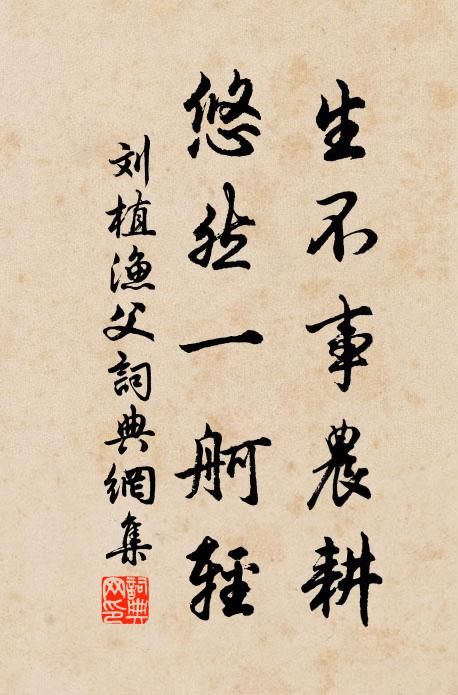 生不事農耕
悠然一舸輕
刘植漁父詞典網集
詞典網印